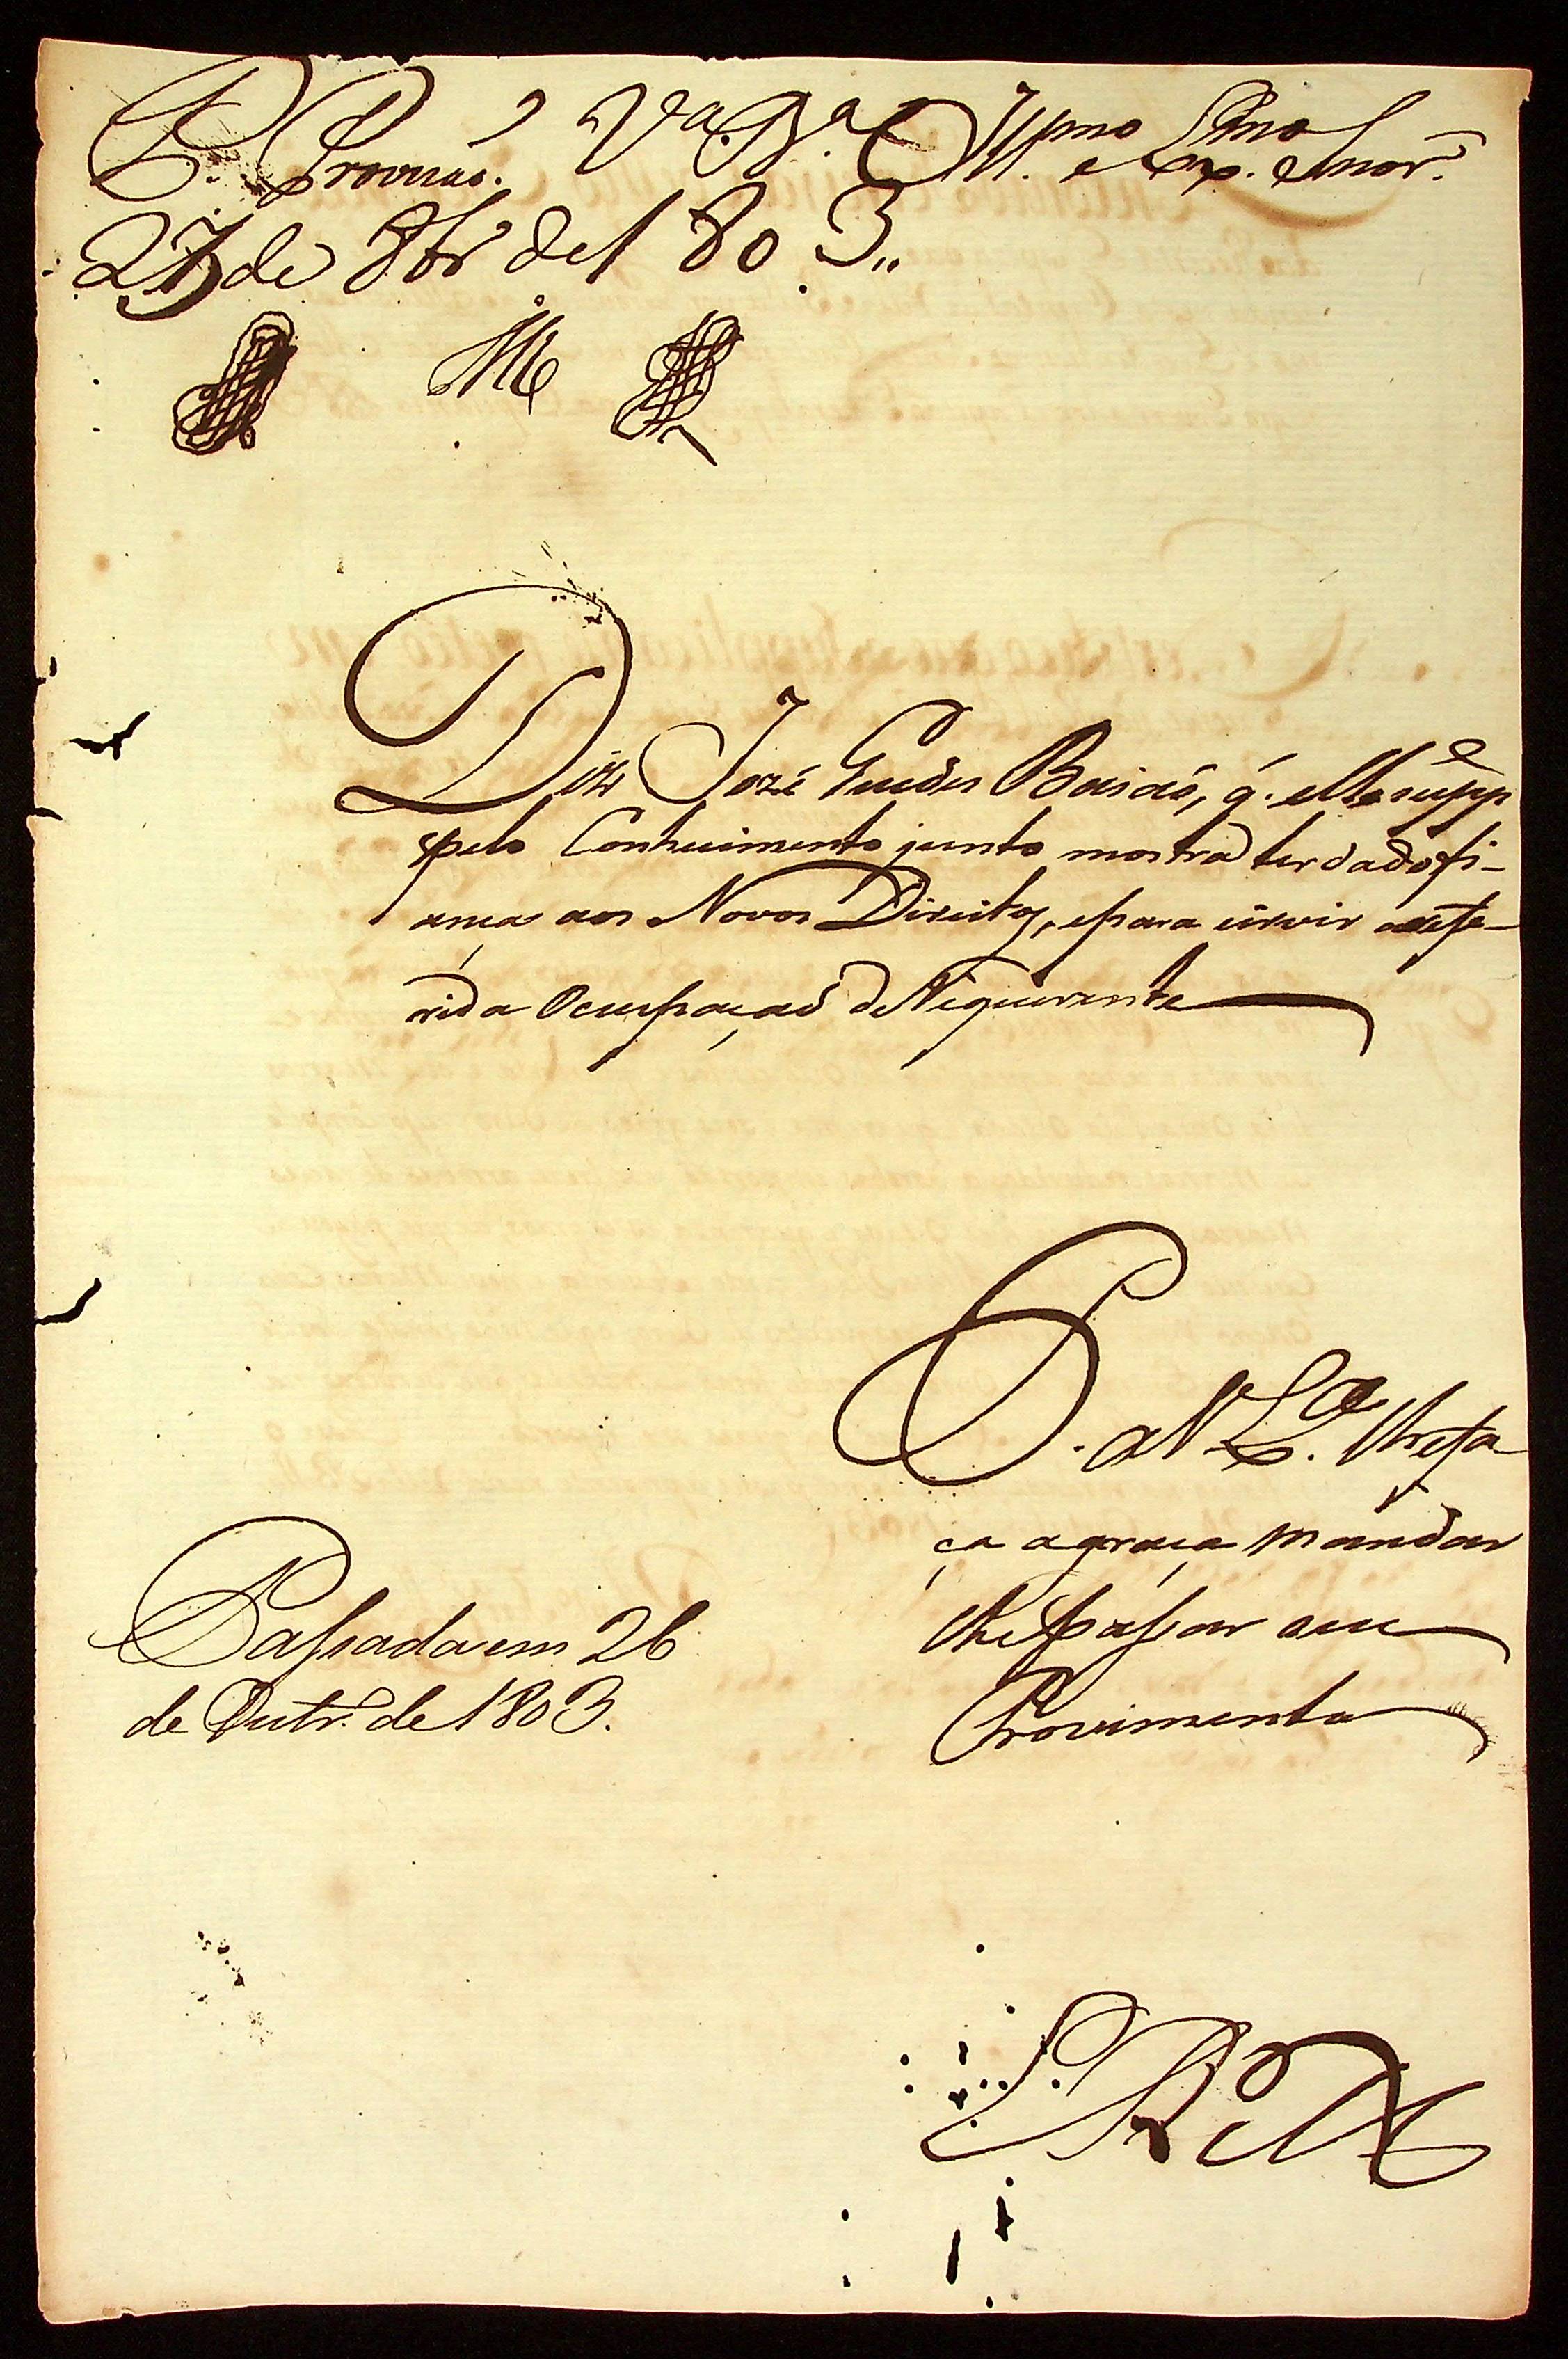 P. P. Provisão. Va. Ba. Illmo e Exmo Snor.
27 de 8br.o de 1803..
Diz Jozé Guedes Baião, q. elle supp.e
pelo Conhecimento junto mostra ter dado fi-
ança aos Novos Direitos, e para servir a refe-
rida Ocupação de Requerente
P. a V. Ex.a lhe fa
ça a graça mandar
lhe passar seu
Provimento
Passada em 26
de Outr.o de 1803.
E R M